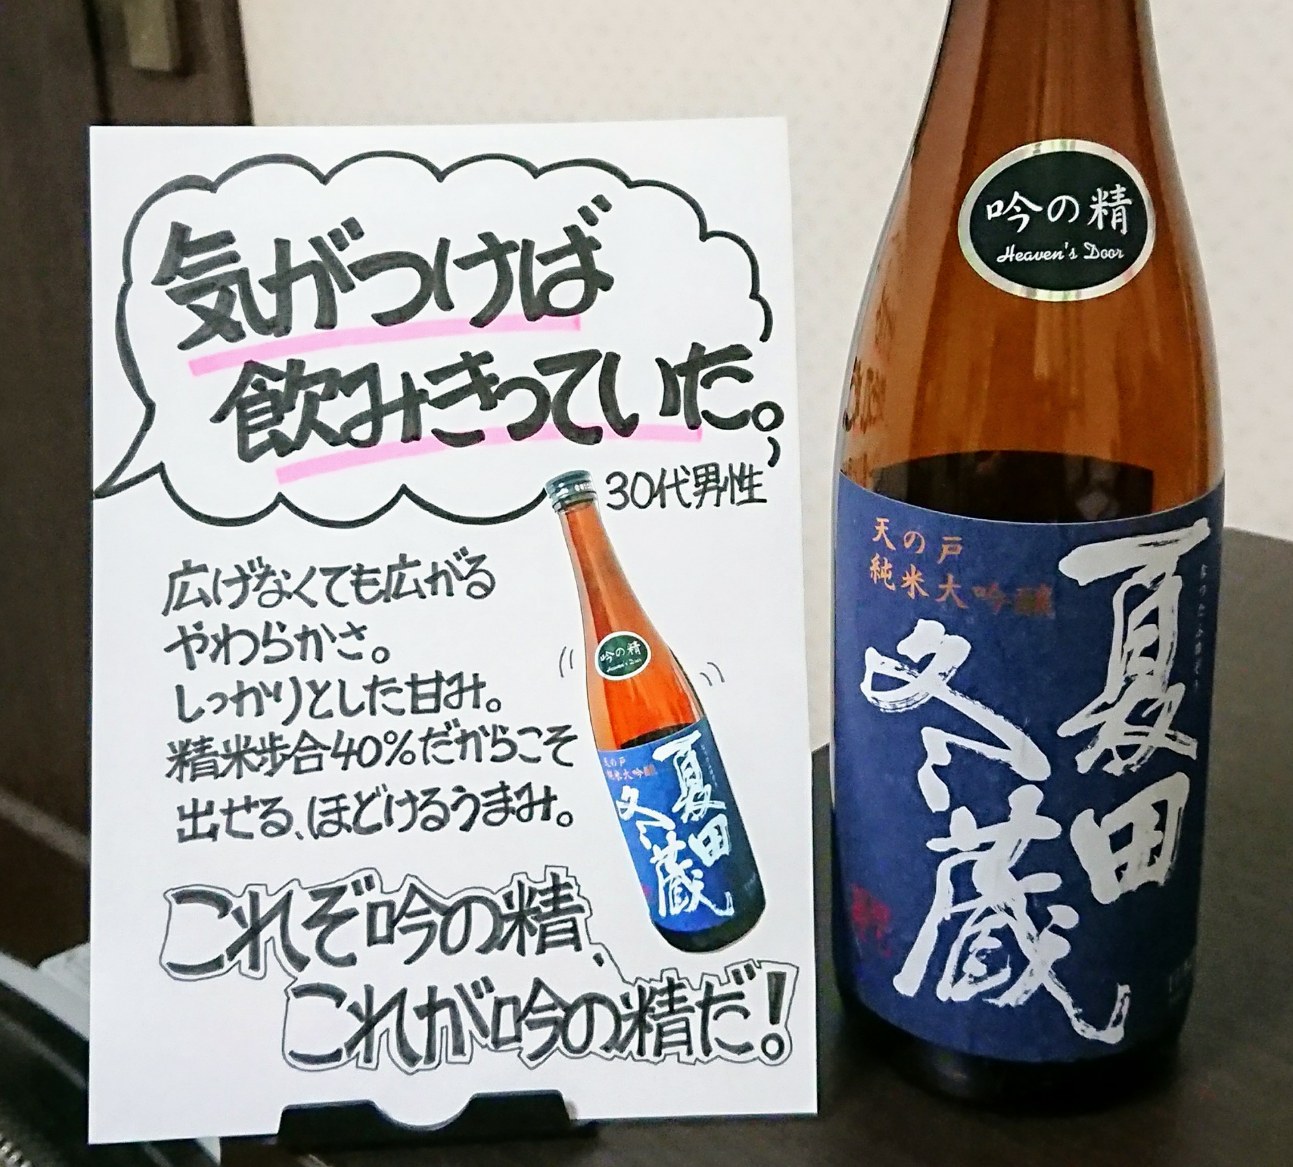 気がつけば
飲みきっていた。
30代男性
広げなくても広がる
やわらかさ。
しっかりとした甘み。
精米歩合40%だからこそ
出せる、ほどけるうまみ。
これぞ吟の精、
これが吟の精だ!
吟の精
Heaven's Door
天の戸
純米大吟醸
夏田
冬蔵
吟の精
Heaven's Door
天の戸
純米大吟醸
夏田
冬蔵